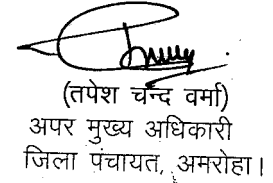 (तपेश चन्द वर्मा)
अपर मुख्य अधिकारी
जिला पंचायत, अमरोहा।